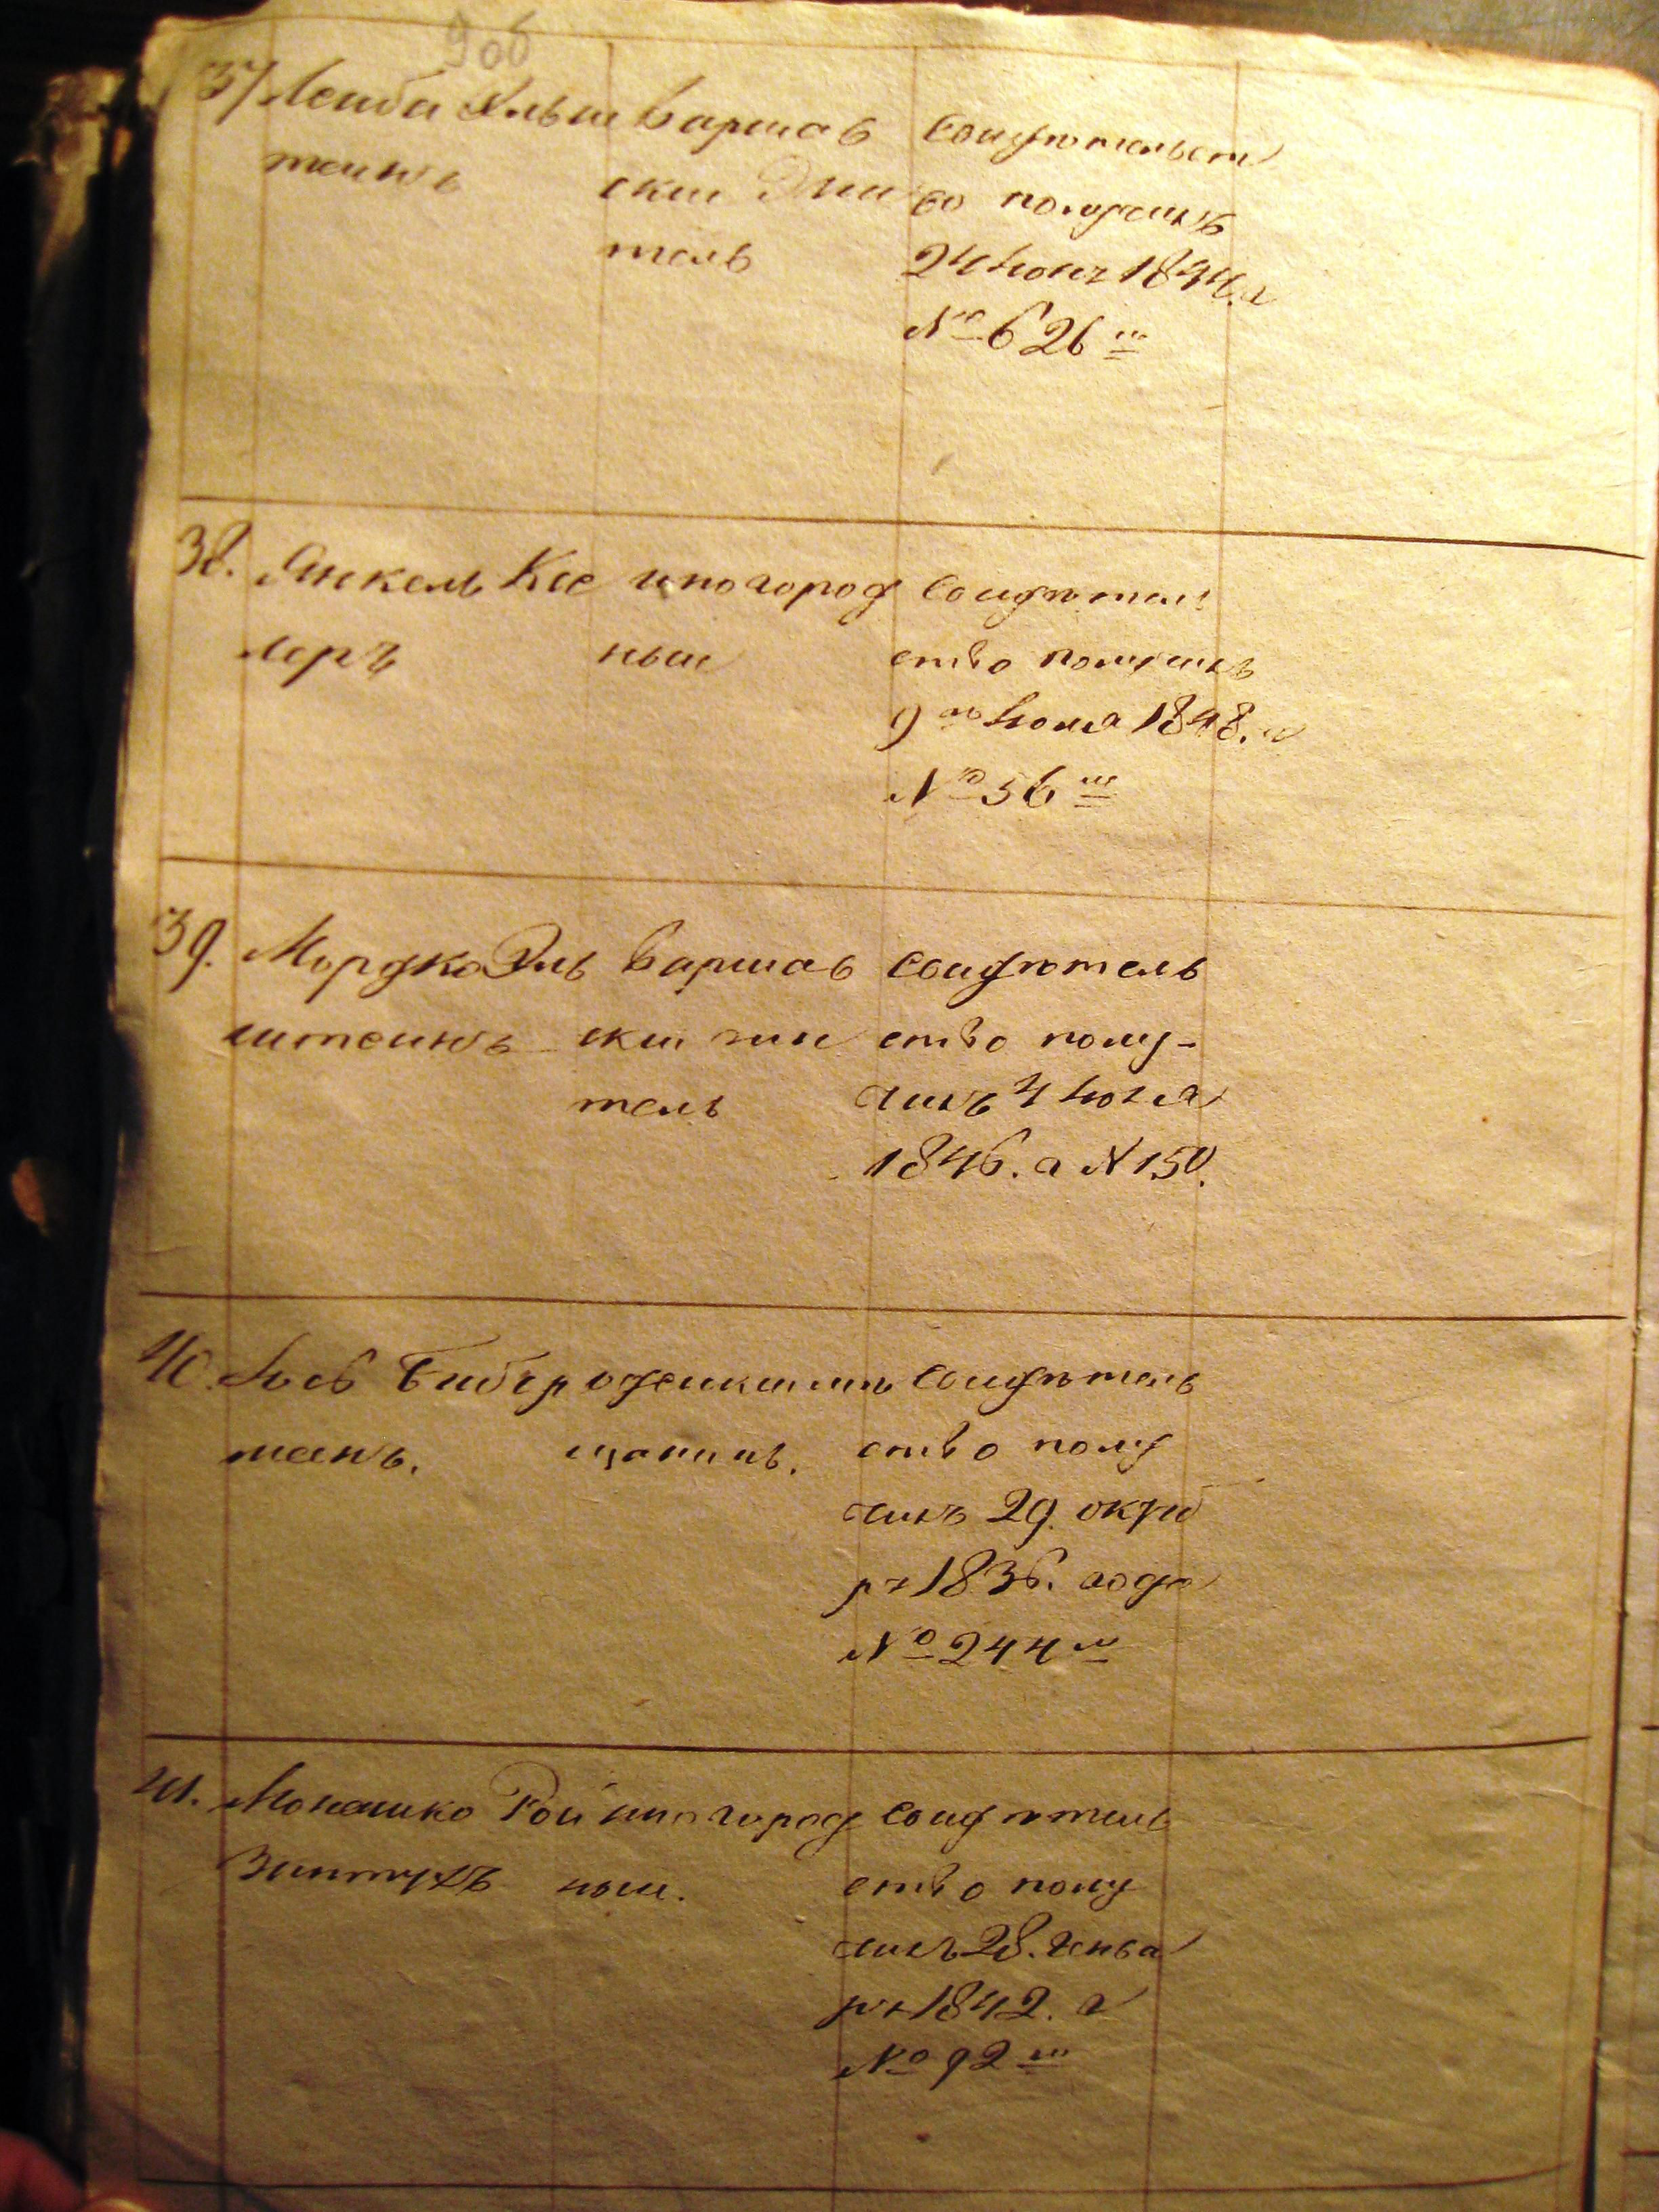 9 об
37 Лейба Эльш
теинъ
Варшав
ский Жи
тель
Свидѣтельст
во получилъ
24 Июня 1844 г
№ 626 ш
38. Янкель Кес
леръ
иногород
ный
Свидѣтель
ство получилъ
9 го Июля 1848. г
№ 56 ш
39. Мордка Эль
штеинъ
Варшав
ский жи
тель
Свидѣтель
ство полу-
чилъ 4 Июля
1846. г № 150.
40. Лев Бибер
манъ.
щанинъ.
Свидѣтель
ство полу
чилъ 29. октяб
ря 1836. года
№ 244 ш
41. Монашко Рой
иногород
ный.
Свидѣтель
ство полу
чилъ 28. Генва
ря 1842. г
№ 92 ш